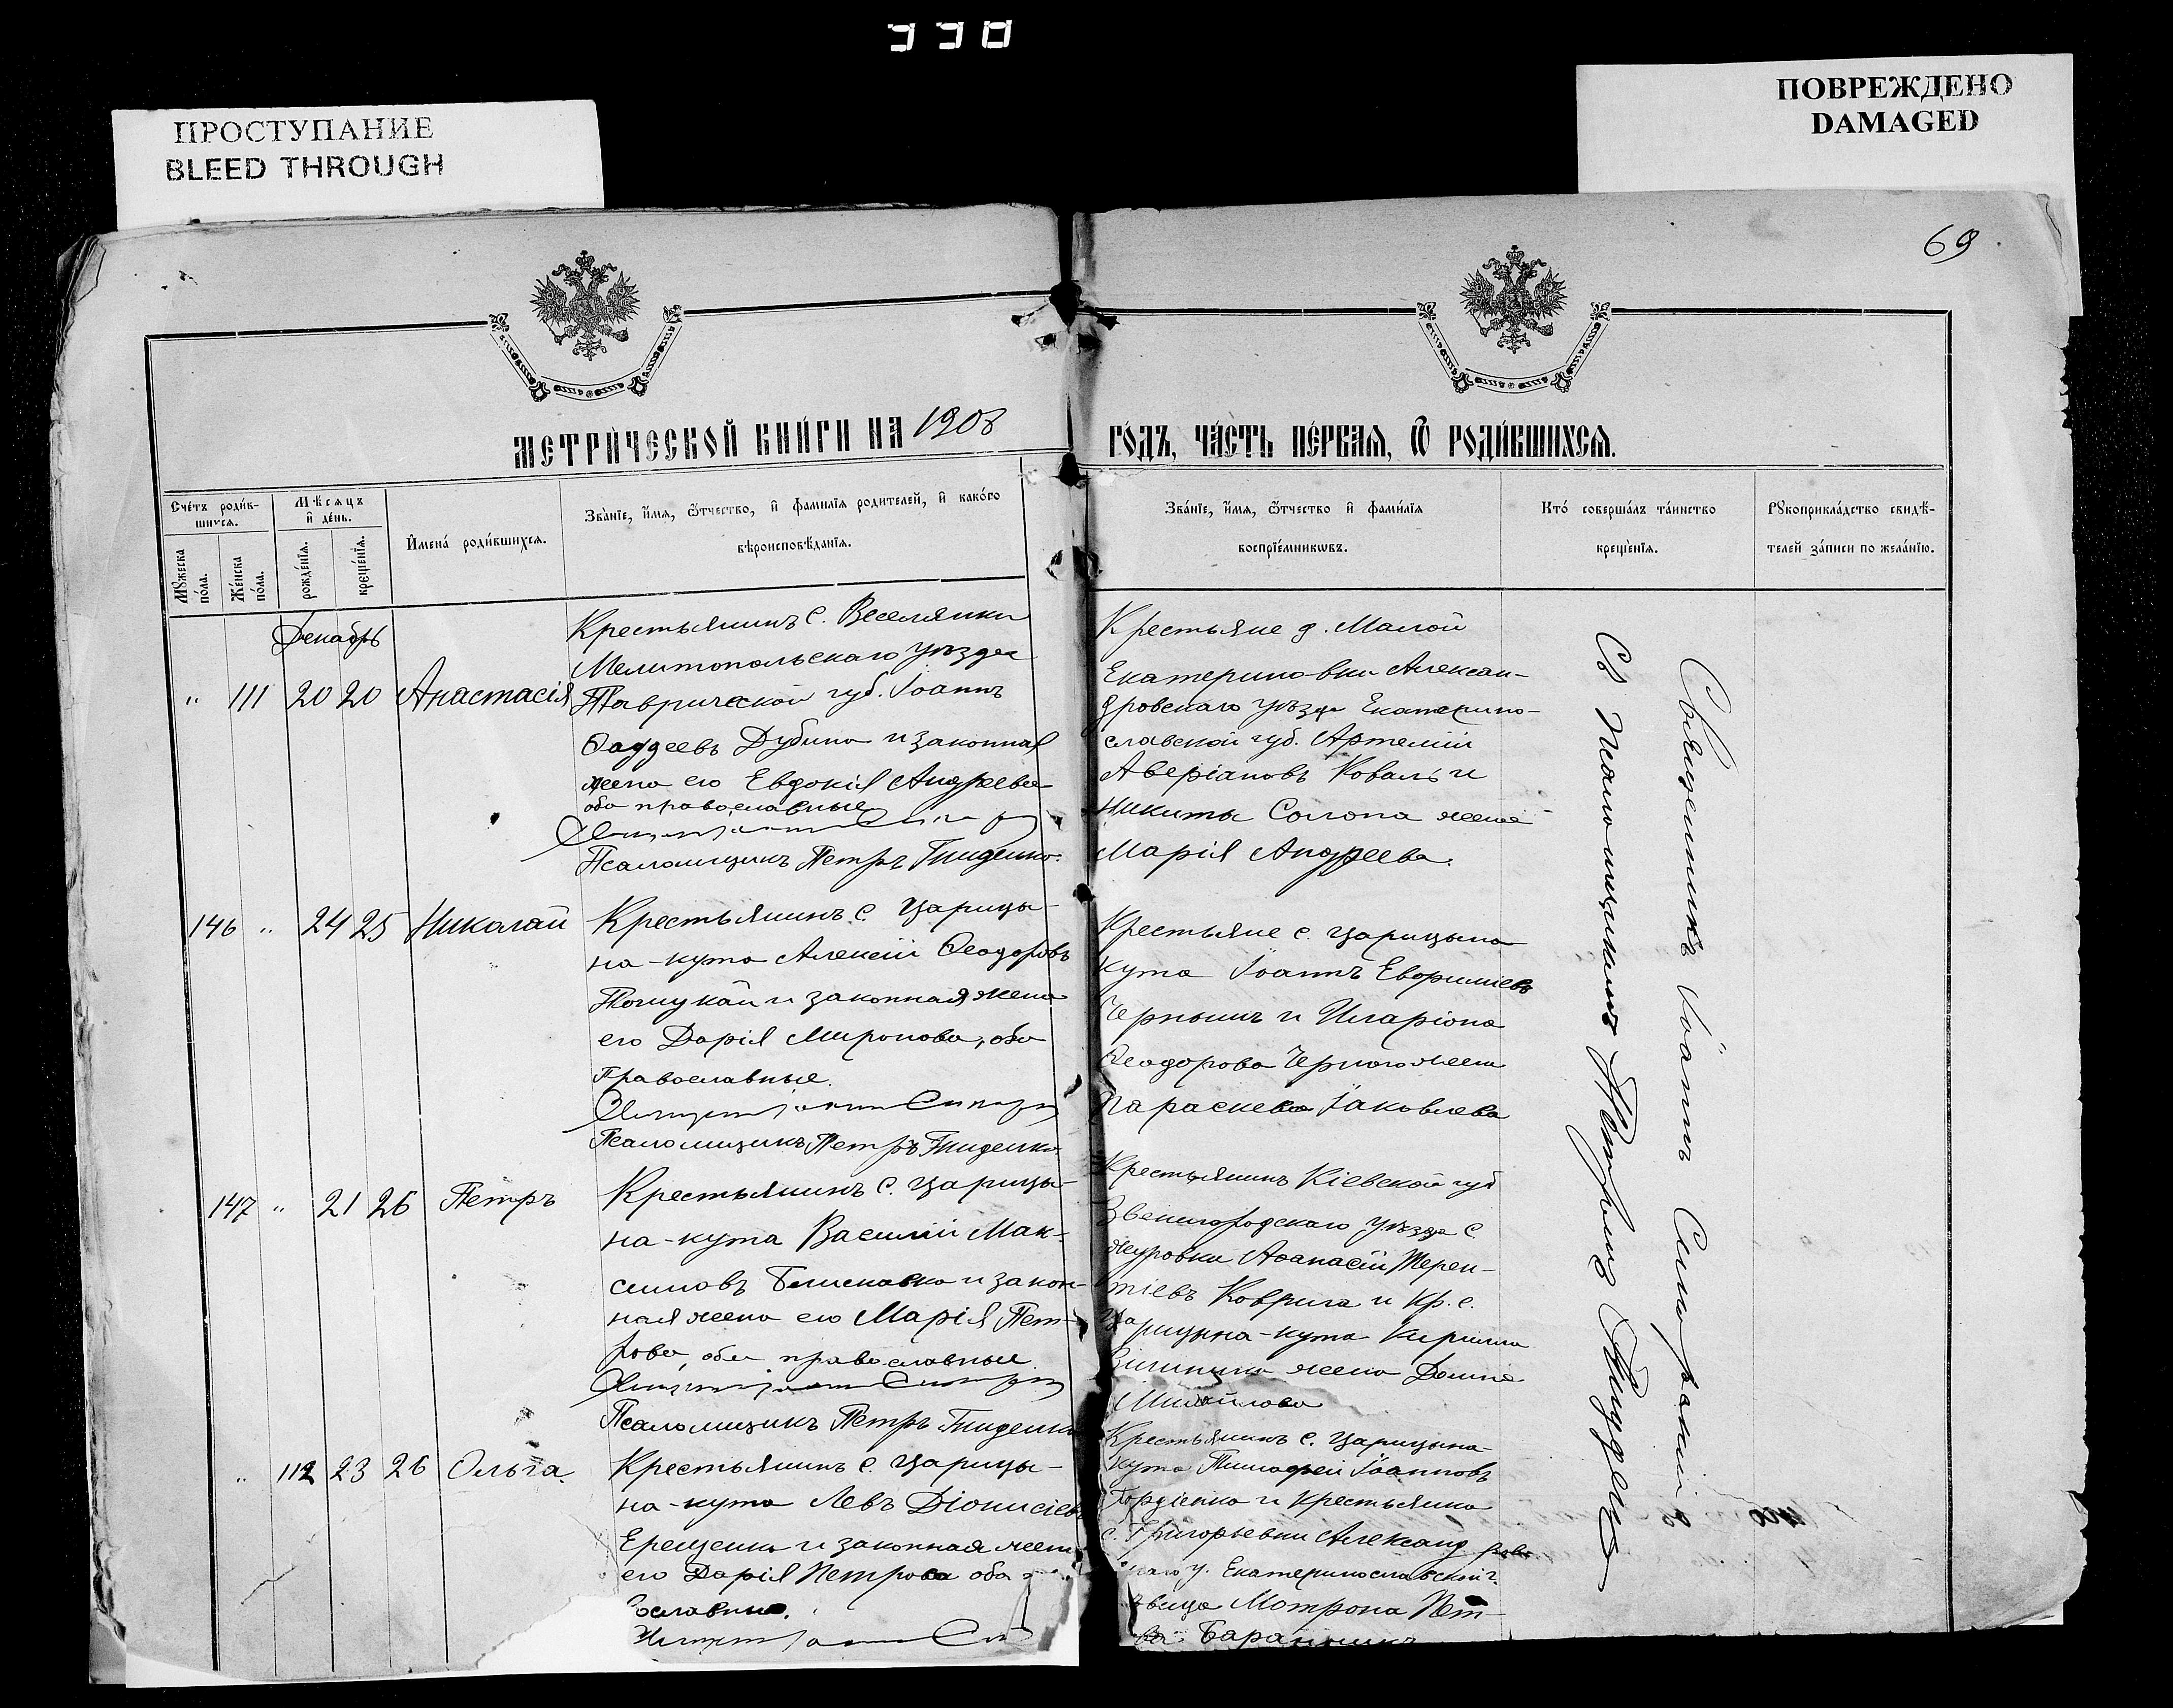 338
ПРОСТУПАНИЕ
BLEED THROUGH
ПОВРЕЖДЕНО
DAMAGED
69
МЕТРИЧЕСКОЙ КНИГИ НА 1908
ГОДЪ, ЧАСТЬ ПЕРВАЯ, Ѿ РОДИВШИХСЯ.
Счетъ родив-
шихся.
Мужеска
пола.
Женска
пола.
Мѣсяцъ
и день.
рожденія.
крещенія.
Имена родившихся.
Званіе, имя, ѿтчество, и фамилія родителей, и какого
вѣроисповѣданія.
Званіе, имя, ѿтчество и фамилія
воспріемниковъ.
Кто совершалъ таинство
крещенія.
Рукоприкладство свидѣ-
телей записи по желанію.
Декабрь
" 111 20 20 Анастасія
Крестьянинъ с. Веселянки
Мелитопольскаго уѣзда
Таврической губ. Іоаннъ
Фаддеевъ Дубина и законная
жена его Евдокія Андреева
оба православные
Псаломщикъ Петръ Гниденко.
Крестьяне д. Малой
Екатериновки Алексан-
дровскаго уѣзда Екатерино-
славской губ. Артемій
Аверіановъ Коваль и
Никиты Солопа жена
Марія Андреева.
146 " 24 25 Николай
Крестьянинъ с. Царицы-
на-кута Алексій Феодоровъ
и законная жена
его Дарія Миронова, оба
православные.
Псаломщикъ Петръ Гниденко.
Крестьяне с. Царицына
кута Іоаннъ Евфиміевъ
Чернышъ и Иларіона
Феодорова Чернаго жена
Параскева Іаковлева
147 " 21 26 Петръ
Крестьянинъ с. Царицы-
на-кута Василій Мак-
симовъ и закон-
ная жена его Марія Пет-
рова, оба православные
Псаломщикъ Петръ Гниденко
Крестьянинъ Кіевской губ
Звенигородскаго уѣзда с
Афанасій Терен-
тіевъ Коврига и кр. с.
Царицына-кута Кирилла
жена
Михайлова
" 112 23 26 Ольга.
Крестьянинъ с. Царицы-
на-кута Левъ Діонисіевъ
Ерещенко и законная жена
его Дарія Петрова оба
вославные.
Крестьянинъ с. Царицына-
кута Тимофей Іоанновъ
Гордіенко и крестьянка
с. Григорьевки Александров
скаго у. Екатеринославской г.
двица Мотрона Пет-
ва
Священникъ Іоаннъ
Съ псаломщикомъ Петромъ Гниденко